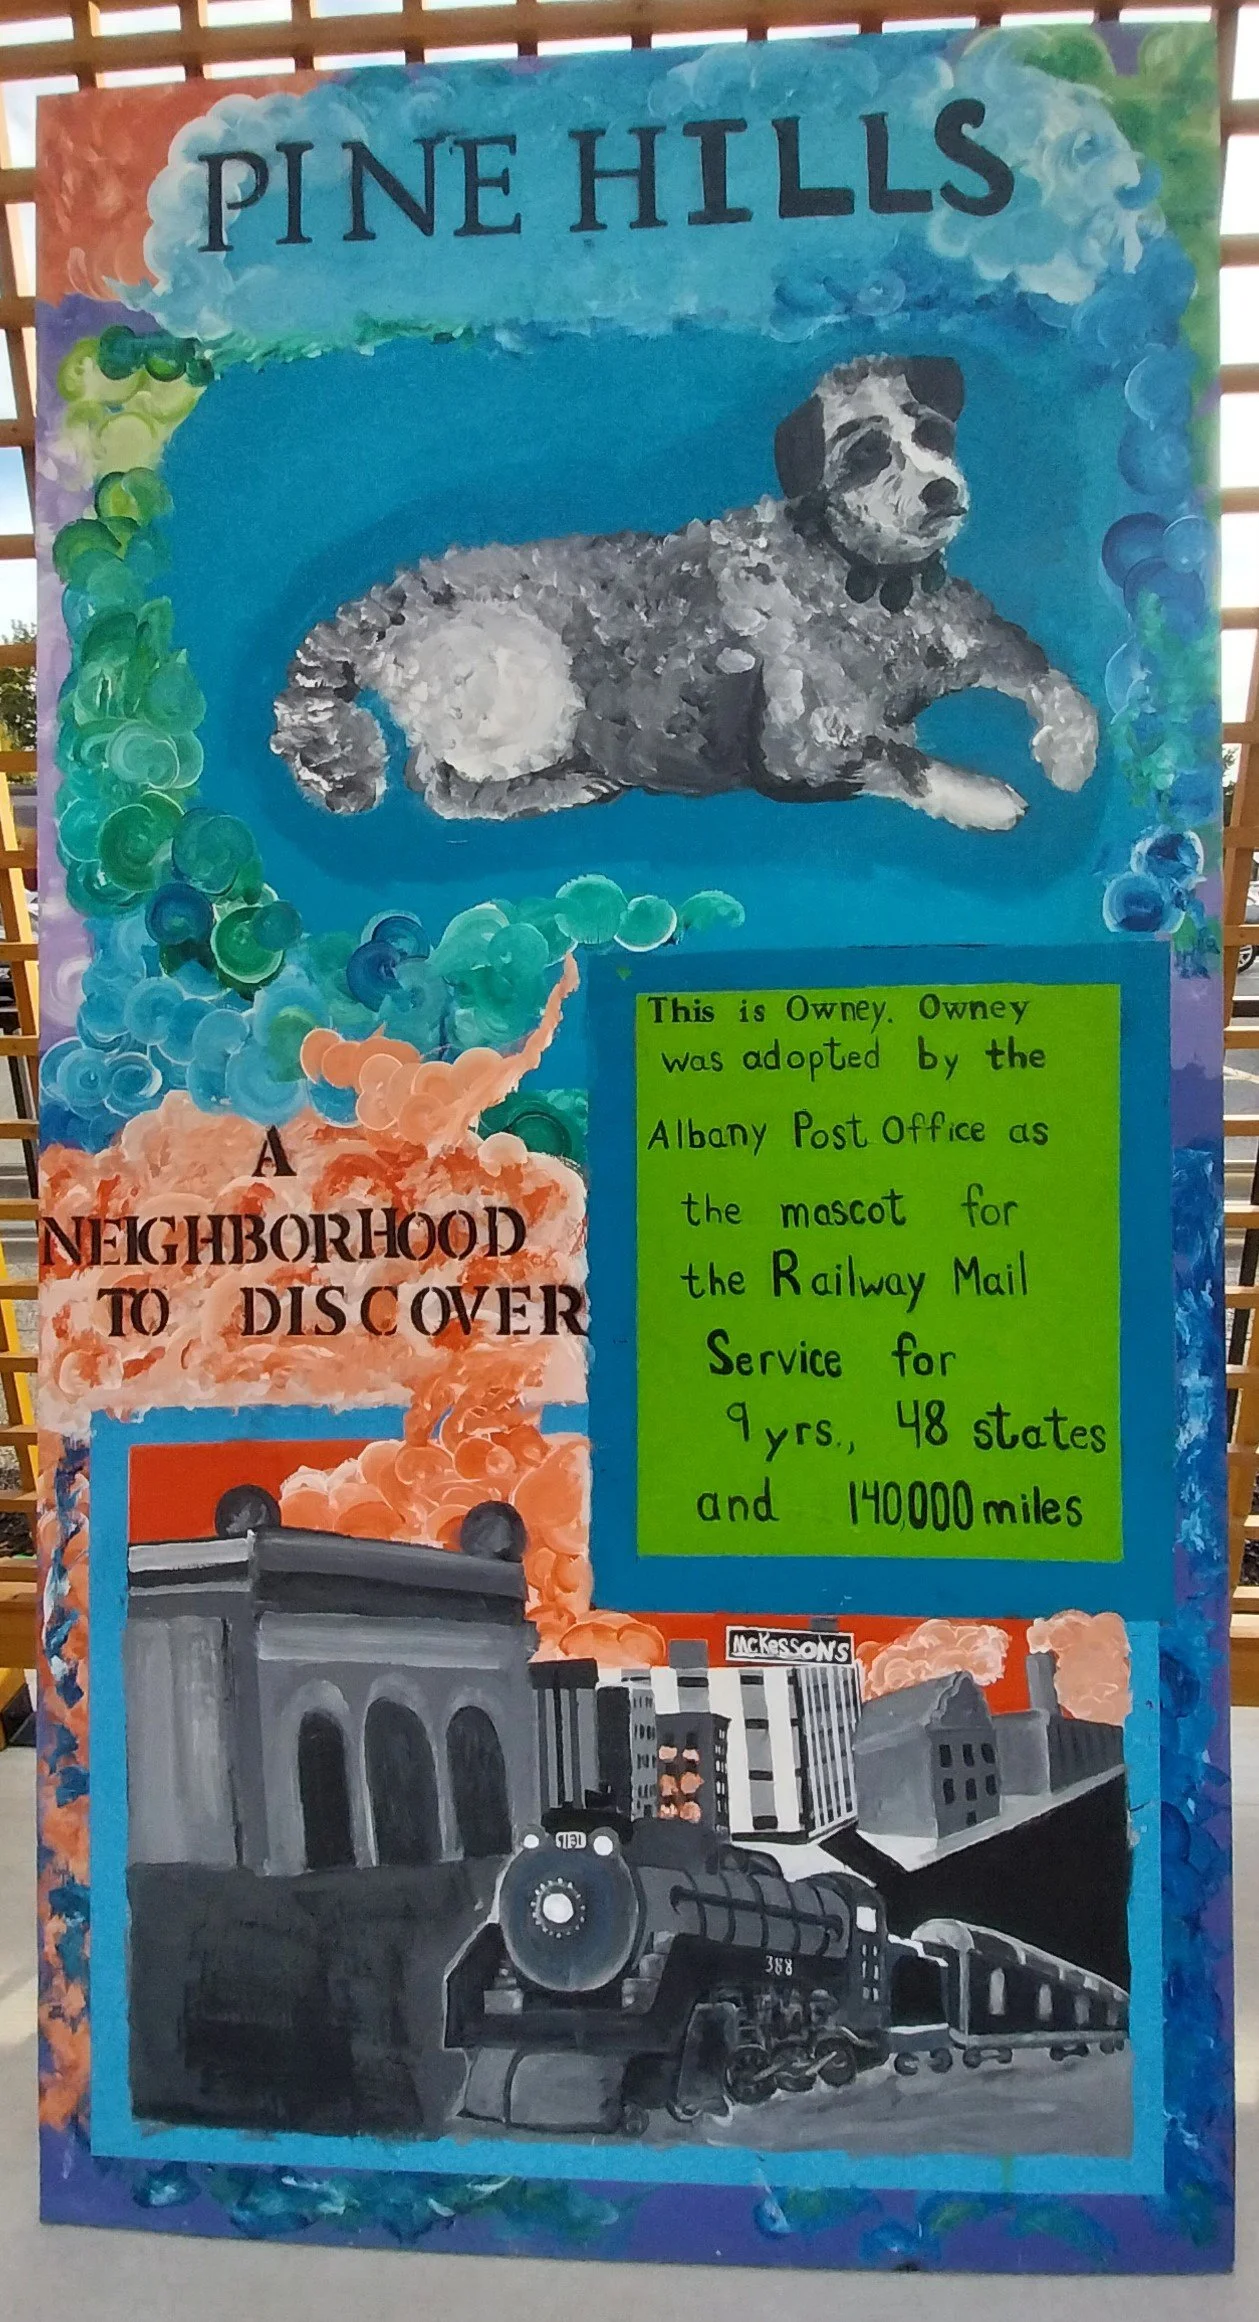 PINE HILLS
This is Owney. Owney
was adopted by the
Albany Post Office as
the mascot for
the Railway Mail
Service for
9 yrs., 48 states
and 140,000 miles
A
NEIGHBORHOOD
TO DISCOVER
McKessons
1131
388